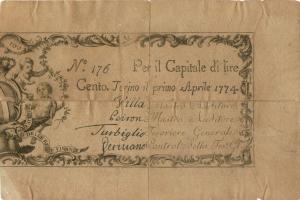 N.º 176 Per il Capitale di lire
Cento. Torino il primo Aprile 1774.
Villa Mastro Auditore
Mastro Auditore
Turbiglio Tesoriere Generale
Peiruano Control. della Tes.